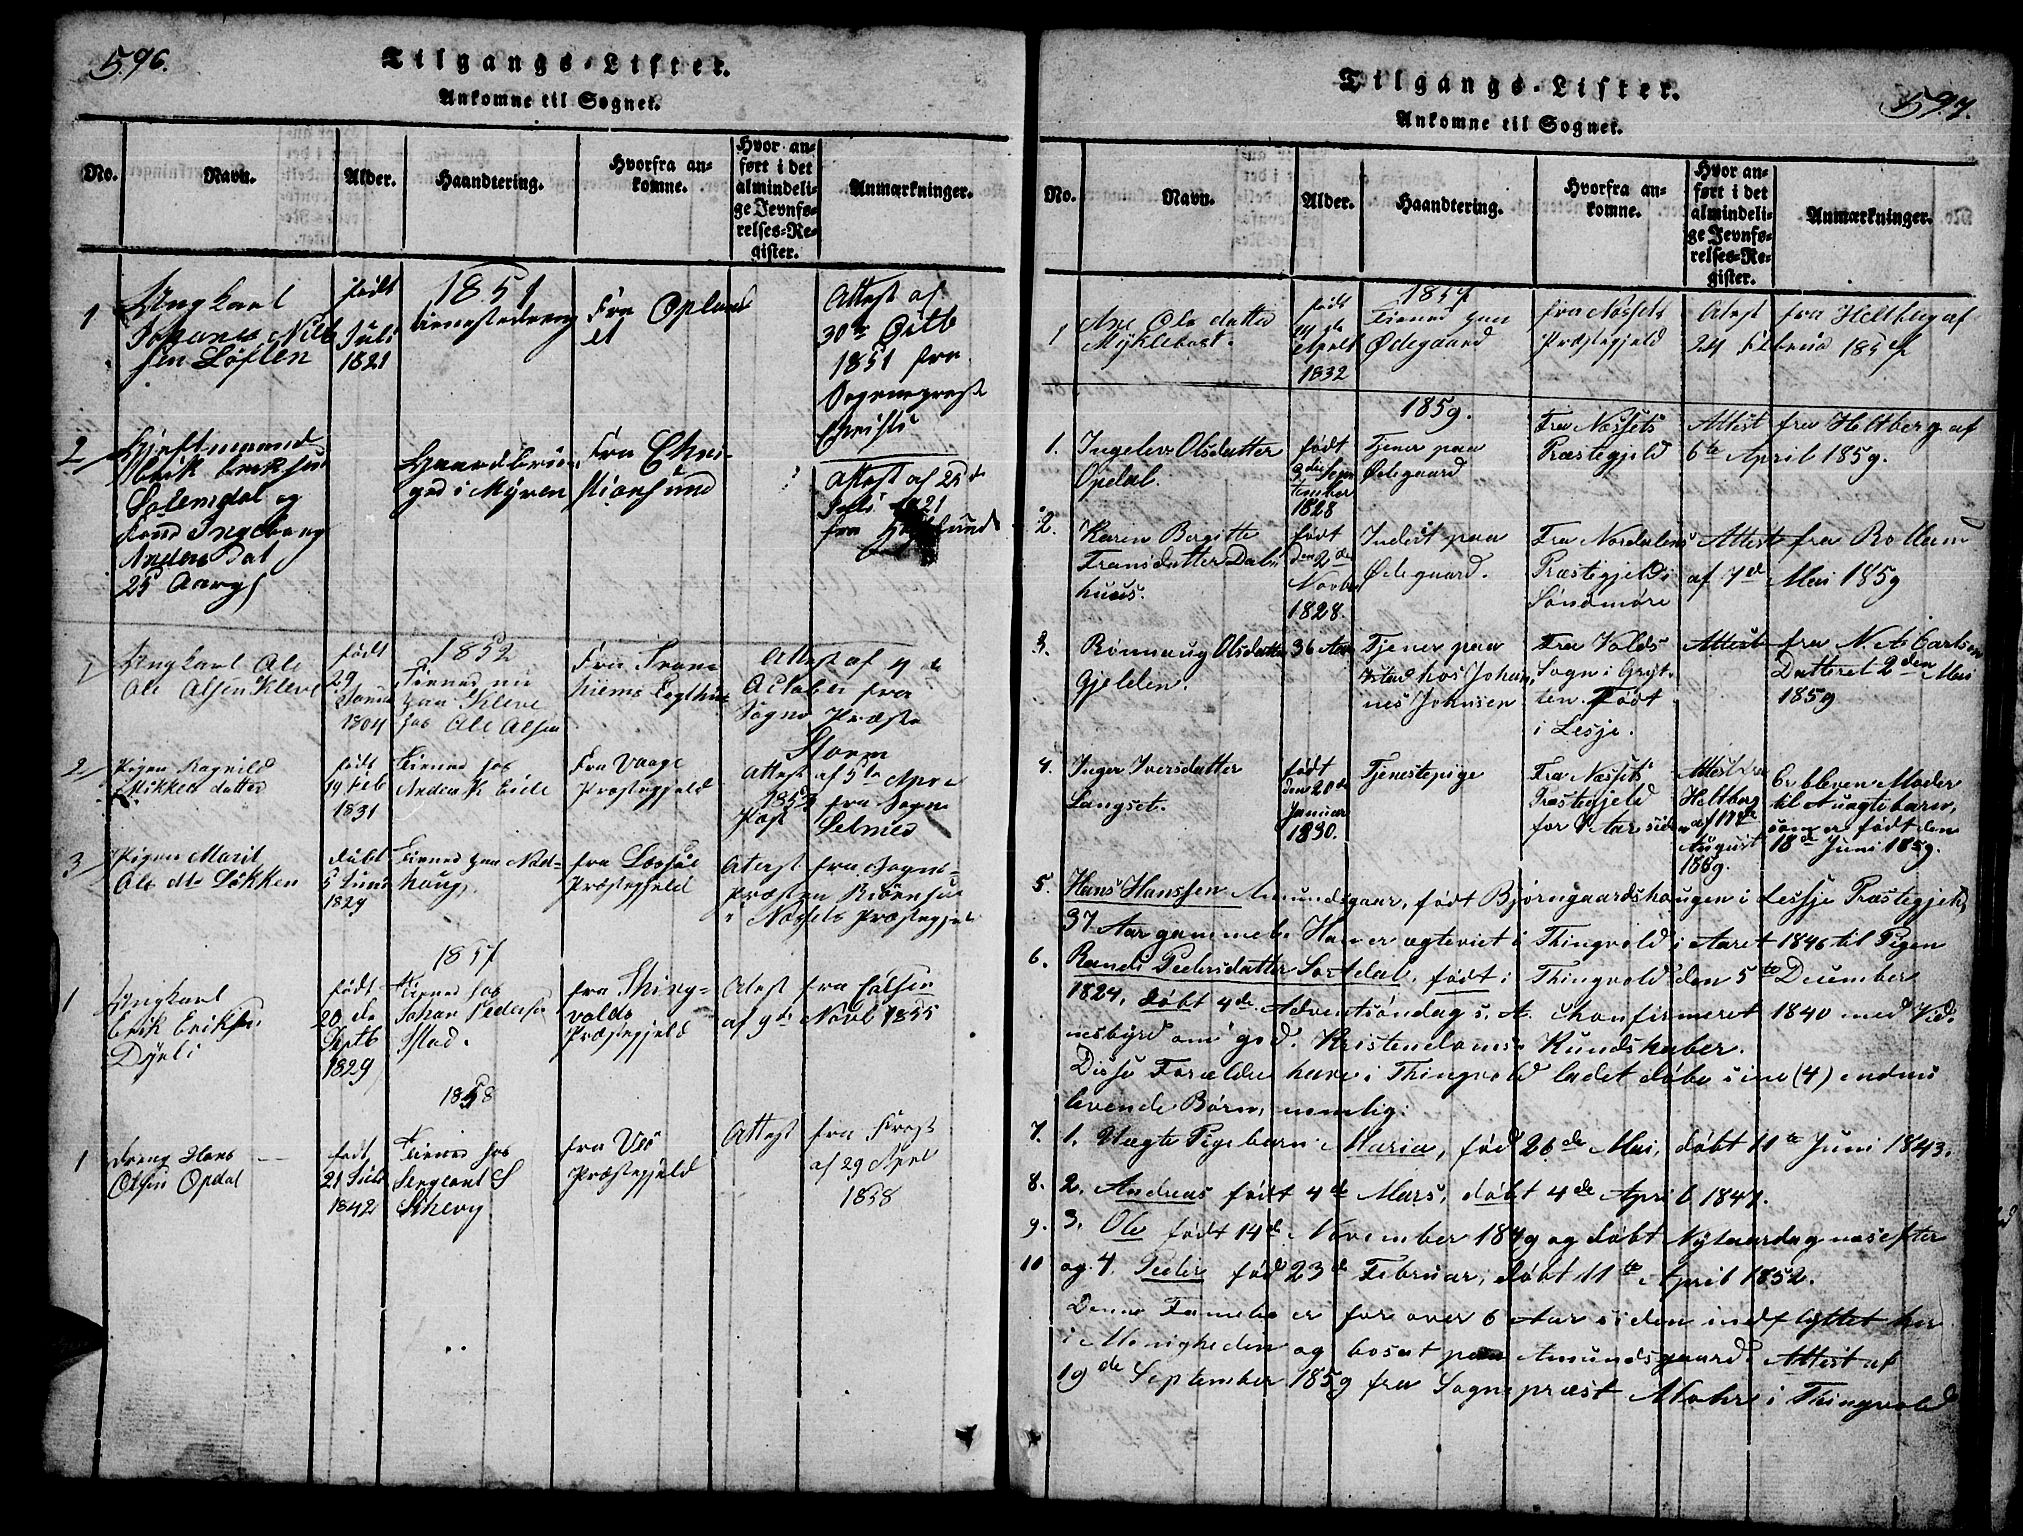 596.
Tilgangs-Lister.
Ankomne til Sognet.
No.
Navn.
Alder.
Haandtering.
Hvorfra an-
komne.
Hvor an-
ført i det
almindeli-
ge Jevnfø-
relses-Re-
gister.
Anmærkninger.
1851
1
Ungkarl
Johanes Nils
sen Løften
født
Juli
1821
tienestedreng
Fra Opland
et
Attest af
30te Octb
1851 fra
Sognepræst
2
Erik Eriksen
Solemdal og
Ingeborg
Anders Dat
25 Aar
Huusbrug
i Myren
Fra Chri-
stiansund
Attest af 25de
Juli
fra
1852
1
Ungkarl Ole
Ole Olsen Kleve
født
29
1804
Tiener nu
paa Kleve
hos Ole Olsen
Fra
Attest af 4de
October fra
Sogne Præst
Storm
2
Pigen Ragnild
Mikkels datter
født
19 Feb
1831
Tiener hos
Anders K Eide
Fra Vaage
Præstegjeld
Attest af 5te
1852 fra Sogne
Præst Selmer
3
Pigen Marit
Ole dtr Løkken
født
5 Juni
1829
Tiener paa Ned-
houg
fra Lessøe
Præstegjeld
Attest fra Sogne-
Præsten
i Nessets Præstegjeld
1857
1
Ungkarl
Erik Eriksen
født
20 de
Septb
1829
Tiener hos
Johan Pedersen
Stad.
fra Thing-
volds
Præstegjeld
Atest fra
af 9de Novb 1855
1858
1
dreng Hans
Olsen Opdal
født
21 Juli
1842
Tiener hos
Sergeant S
fra Veø
Præstegjeld
Attest fra
af 29 April
1858
597.
Tilgangs-Lister.
Ankomne til Sognet.
No.
Navn.
Alder.
Haandtering.
Hvorfra an-
komne.
Hvor an-
ført i det
almindeli-
ge Jevnfø-
relses-Re-
gister.
Anmærkninger.
1
Ole datter
Myklebost.
født
April
1832
Tiener paa
Ødegaard
fra Nessets
Præstegjeld
Atest fra Heltberg af
24 Februar
1859.
1.
Ingelev Olsdatter
Opdal.
født
3die Sep-
tember
1828
Tjener paa
Ødegaard
Fra Næssets
Præstegjeld
Attest fra Heltberg af
6te April 1859.
2.
Karen Birgitte
Fransdatter Dals
huus.
født
den 2de
Novbr
1828.
Inderst paa
Ødegaard.
Fra Nordalens
Præstegjeld i
Søndmøre
Attest fra
af 7de Mai 1859
3.
Rønnaug Olsdatter
Gjelden.
36 Aar
Tjener paa
hos Johan-
nes Johnsen
Fra Volds
Sogn i Gryt-
ten. Født
i Lesje.
Attest fra N. A. Carlsen
Datteret 2den Mai
1859
4.
Inger Iversdatter
Langset.
født
den 20de
Januar
1830.
Tjenestepige
Fra Næssets
Præstegjeld
for 1 Aar siden
Attest fra
Heltberg
af 17de
August
1859.
Er bleven Moder
til Uægtebarn,
som er født den
18de Juni 1859.
5.
Hans Hanssen Amundsgaar, født Bjørngaardshaugen i Lessje Præstegjeld,
37 Aar gammel. Han er ægteviet i Thingvold i Aaret 1846 til Pigen
6.
Randi Pedersdatter Sordal, født i Thingvold den 5te December
1824, døbt 4de Adventsøndag s. A. Chonfirmeret 1840 med Vid-
nesbyrd om god. Kristendoms Kundskaber.
Disse Forældre have i Thingvold ladet døbe sine (4) endnu
levende Børn, nemlig:
7.
1. Uægte Pigebarn Maria, fød 26de Mai, døbt 11te Juni 1843.
8.
2. Andreas født 4de Mars, døbt 4de April 1847.
9.
3. Ole født 14de November 1849 og døbt Nytaarsdag næsefter
10
og 4. Peder fød 23de Februar, døbt 11te April 1852.
Denne Famelie er for over 6 Aar siden indflyttet her
i Menigheden og bosat paa Amundsgaard. Attest af
19de September 1859 fra Sognepræst Mohr i Thingvold